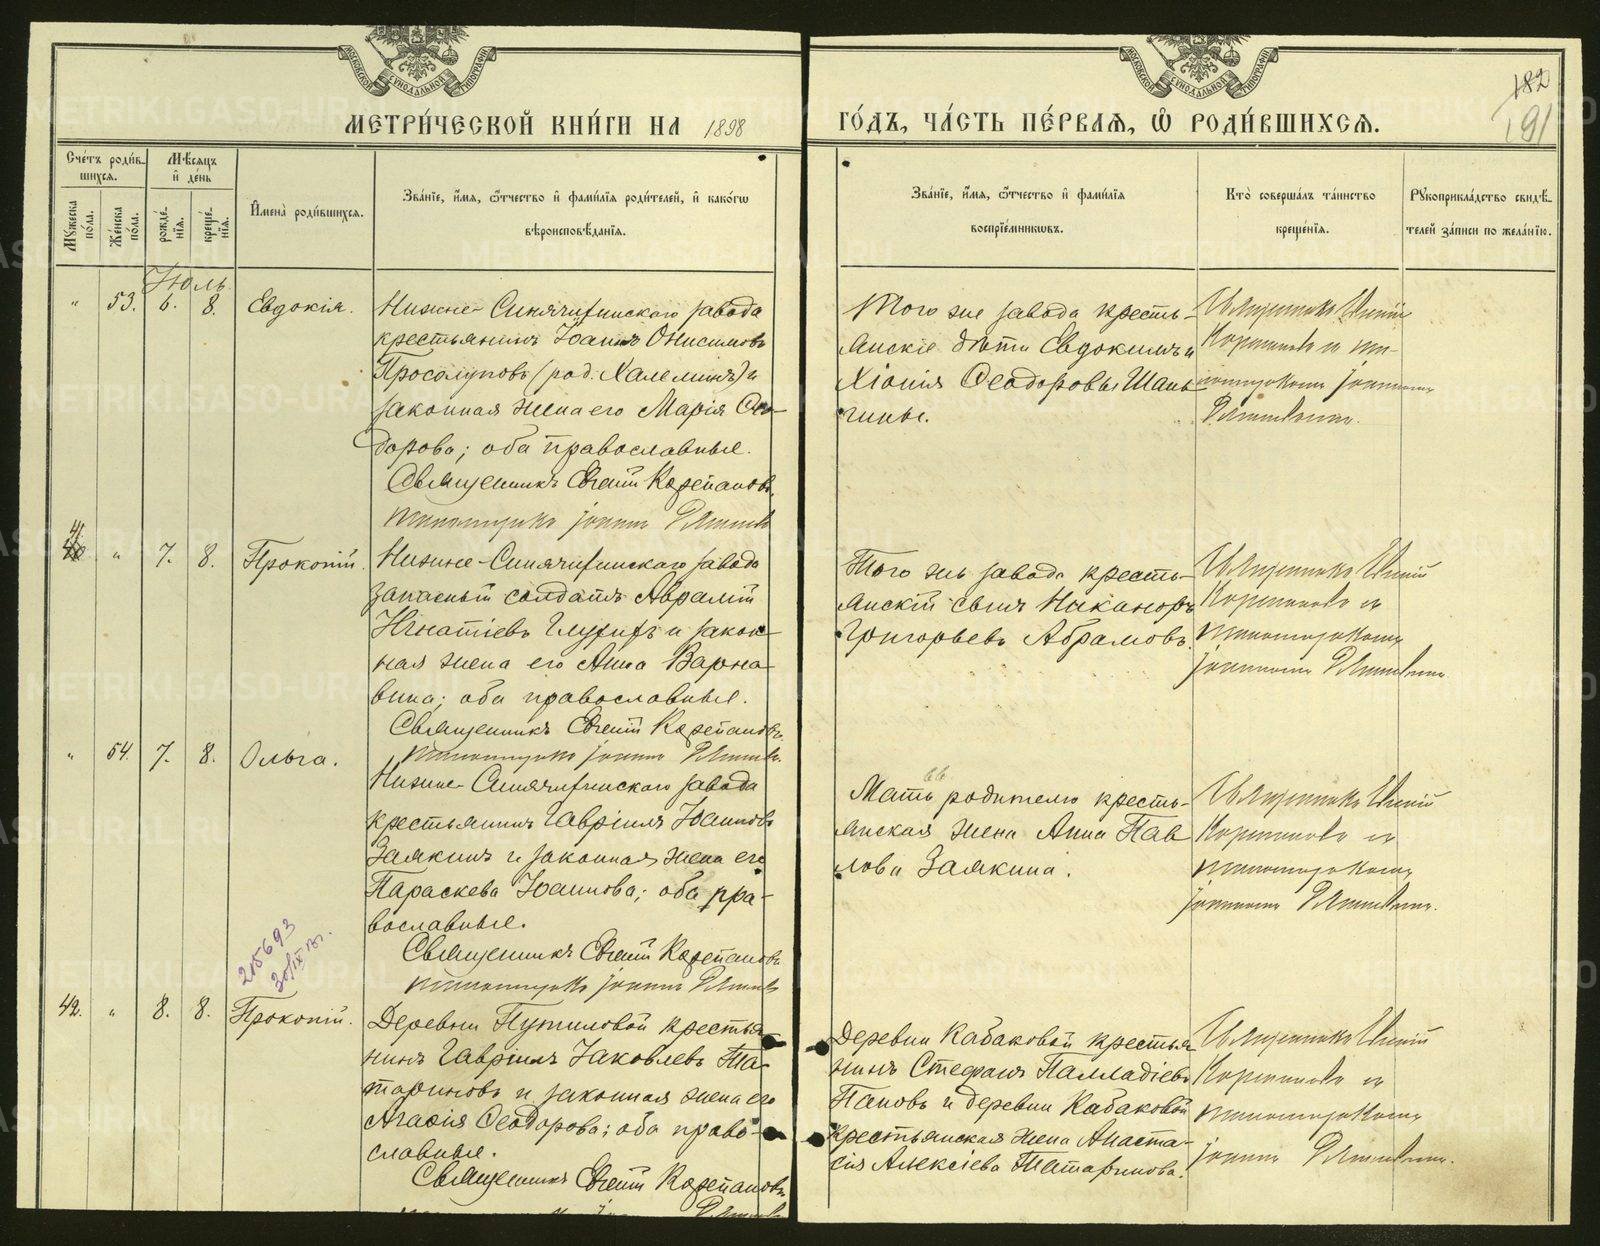 МЕТРИ́ЧЕСКОЙ КНИ́ГИ НА 1898
ГО́ДЪ, ЧА́СТЬ ПЕ́РВАѦ, Ѿ РОДИ́ВШИХСѦ.
182
191
Сче́тъ роди́в-
шихсѧ.
Мѣ́сѧцъ
и҆ де́нь
Мꙋ́жеска по́ла.
Же́нска по́ла.
рожде́-
нїѧ.
креще́-
нїѧ.
И҆мена̀ роди́вшихсѧ.
Зва́нїе, и҆́мѧ, ѻ҆́тчество и҆ фами́лїѧ роди́телей, и҆ како́гѡ
вѣроисповѣ́данїѧ.
Зва́нїе, и҆́мѧ, ѻ҆́тчество и҆ фами́лїѧ
воспрїе́мникѡвъ.
Кто̀ соверша́лъ та́инство
креще́нїѧ.
Рꙋкоприкла́дство свидѣ́-
телей за́писи по жела́нїю.
Іюль
" 53. 6. 8. Евдокія.
Нижне-Синячихинскаго завода
крестьянинъ Іоаннъ Онисимовъ
Просолуповъ (род. Халеминъ) и
законная жена его Марія Ѳео-
дорова; оба православные.
Священникъ Евгеній Корепановъ
Того же завода кресть-
янскіе дѣти Евдокимъ и
Хіонія Ѳеодоровы Шань-
гины.
Священникъ Евгеній
Корепановъ и
41 " 7. 8. Прокопій.
Нижне-Синячихинскаго завода
запасный солдатъ Аврамій
Игнатіевъ Глухихъ и закон-
ная жена его Анна Варна-
вина; оба православные.
Священникъ Евгеній Корепановъ
Того же завода кресть-
янскій сынъ Никаноръ
Григорьевъ Абрамовъ.
Священникъ Евгеній
Корепановъ и
" 54. 7. 8. Ольга.
Нижне-Синячихинскаго завода
крестьянинъ Гавріилъ Іоанновъ
Заякинъ и законная жена его
Параскева Іоаннова; оба пра-
вославные.
Священникъ Евгеній Корепановъ
Мать родителю кресть-
янская жена Анна Пав
лова Заякина.
Священникъ Евгеній
Корепановъ и
215693
42. " 8. 8. Прокопій.
Деревни Путиловой крестья-
нинъ Гавріилъ Іаковлевъ Та-
тариновъ и законная жена его
Агафія Ѳеодорова; оба право-
славные.
Священникъ Евгеній Корепановъ
Деревни Кабаковой крестья-
нинъ Стефанъ Палладіевъ
Пановъ и деревни Кабаковой
крестьянская жена Анаста-
сія Алексіева Татаринова.
Священникъ Евгеній
Корепановъ и